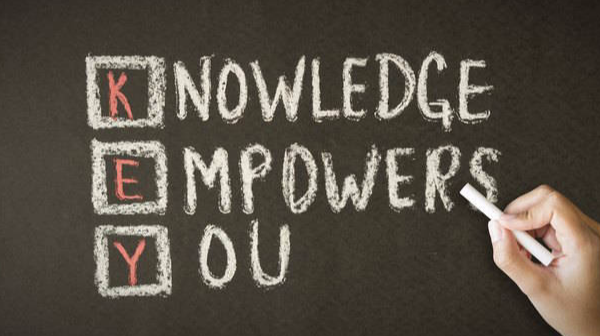 KNOWLEDGE
EMPOWERS
YOU